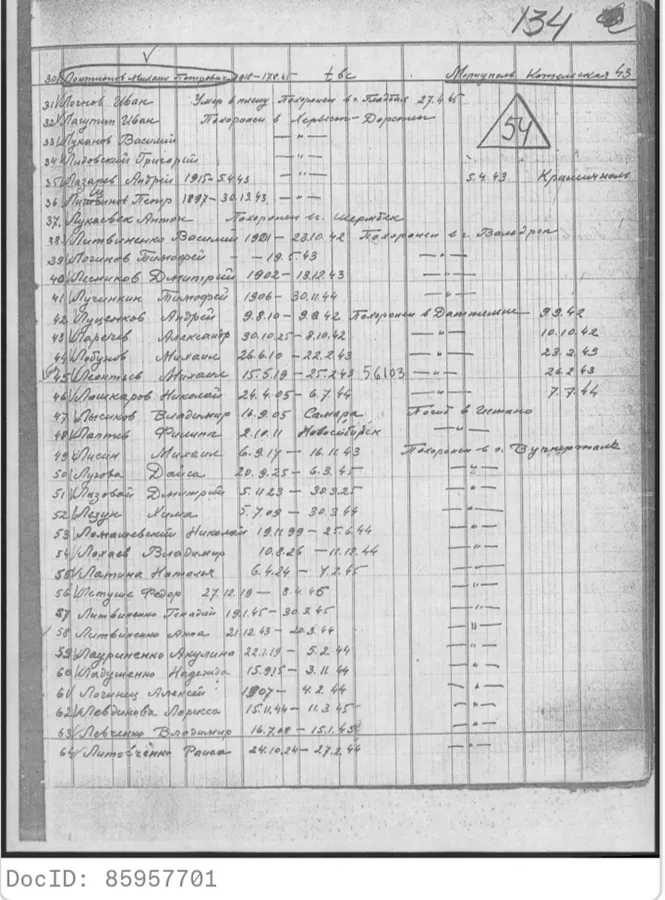 134
30 Локтионов Михаил Петрович 1918-17.8.45 tbc Мариуполь Котельская 43
31 Логнов Иван Умер в плену Похоронен в г. Гладбах 27.4.45
32 Лагутин Иван Похоронен в Дорстен
54
33 Луканов Василий — " —
34 Лидовский Григорий — " —
35 Лазарев Андрей 1915-5.4.43 — " — 5.4.43
36 Петр 1897-30.12.43 — " —
37. Лукаевск Антон Похоронен в г. Шермбек
38 Литвиненко Василий 1921-23.10.42 Похоронен в г.
39 Логинов Тимофей - - 19.5.43 — " —
40 Лесников Дмитрий 1902-13.12.43 — " —
41 Лучинкин Тимофей 1906-30.11.44 — " —
42 Луценков Андрей 9.8.10-9.9.42 Похоронен в Даттельне 9.9.42
43 Ларечев Александр 30.10.25-8.10.42 — " — 10.10.42
44 Лобунов Михаил 26.6.10-22.2.43 — " — 23.2.43
45 Леонтьев Михаил 15.5.19-25.2.43 56103 — " — 26.2.43
46 Лошкаров Николай 24.4.05-6.7.44 — " — 7.7.44
47 Лысиков Владимир 16.9.05 Самара Погиб в
48 Лаптев Филипп 2.10.11 Новосибирск — " —
49 Лисин Михаил 6.9.17-16.11.43 Похоронен в г. Вуппертале
50 Лурова Даиса 20.9.25-6.3.45 — " —
51 Лазовой Дмитрий 5.11.23-30.3.25 — " —
52 Лезун Хима 5.7.09-30.3.44 — " —
53 Ломашевский Николай 19.11.99-25.6.44 — " —
54 Лохаев Владимир 10.8.26-11.12.44 — " —
55 Латина Наталья 6.4.24-7.2.45 — " —
56 Федор 27.12.19-8.4.45 — " —
57 Литвиненко Генадий 19.1.45-30.3.45 — " —
58 Литвиненко Анна 21.12.43-20.3.44 — " —
59 Лауриненко Акулина 22.1.19-5.2.44 — " —
60 Ладушенко Надежда 15.9.15-3.11.44 — " —
61 Логинец Алексей 1907-4.2.44 — " —
62 Левдикова Ларисса 15.11.44-11.3.45 — " —
63 Левченко Владимир 16.7.08-15.1.45 — " —
64 Литовченко Раиса 24.10.24-27.2.44 — " —
DocID: 85957701